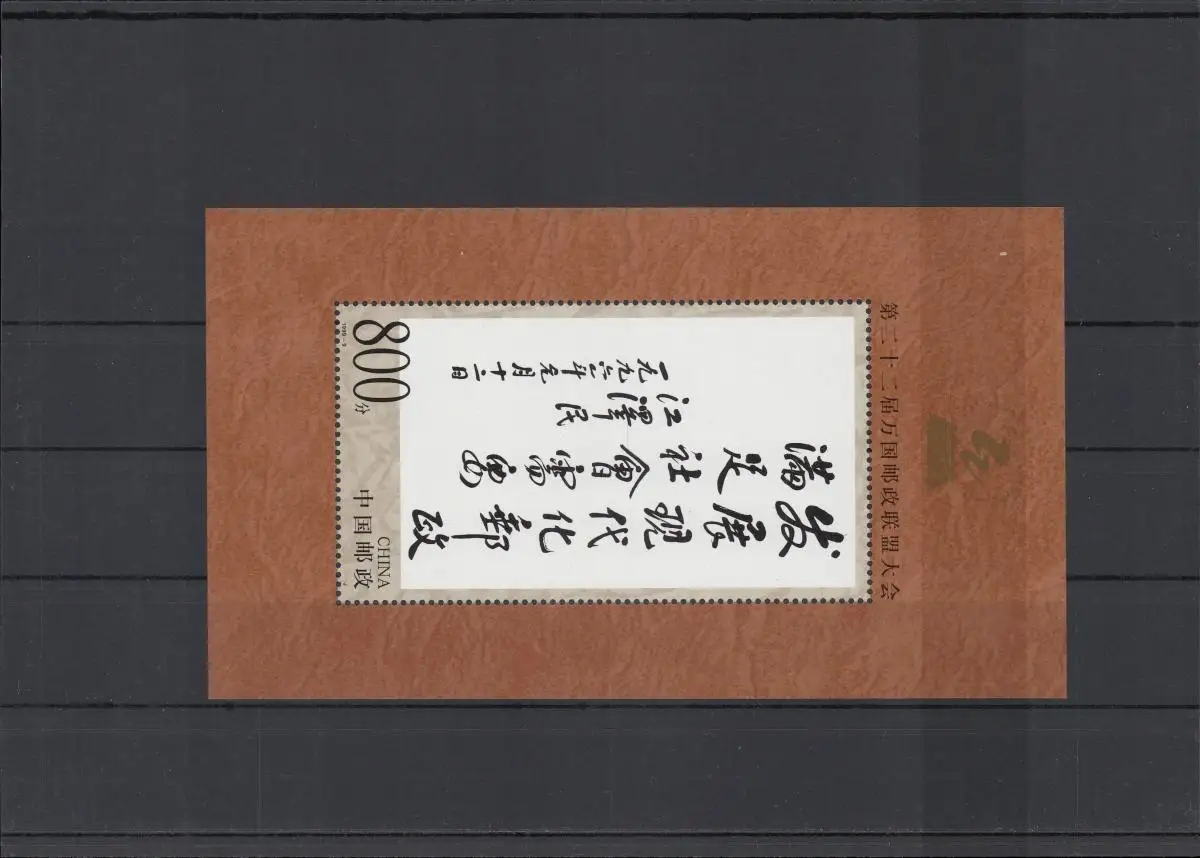 第二十二届万国邮政联盟大会
发展現代化郵政
滿足社會需要
江澤民
一九九六年元月十二日
CHINA
中国邮政
800分
1999-9
J